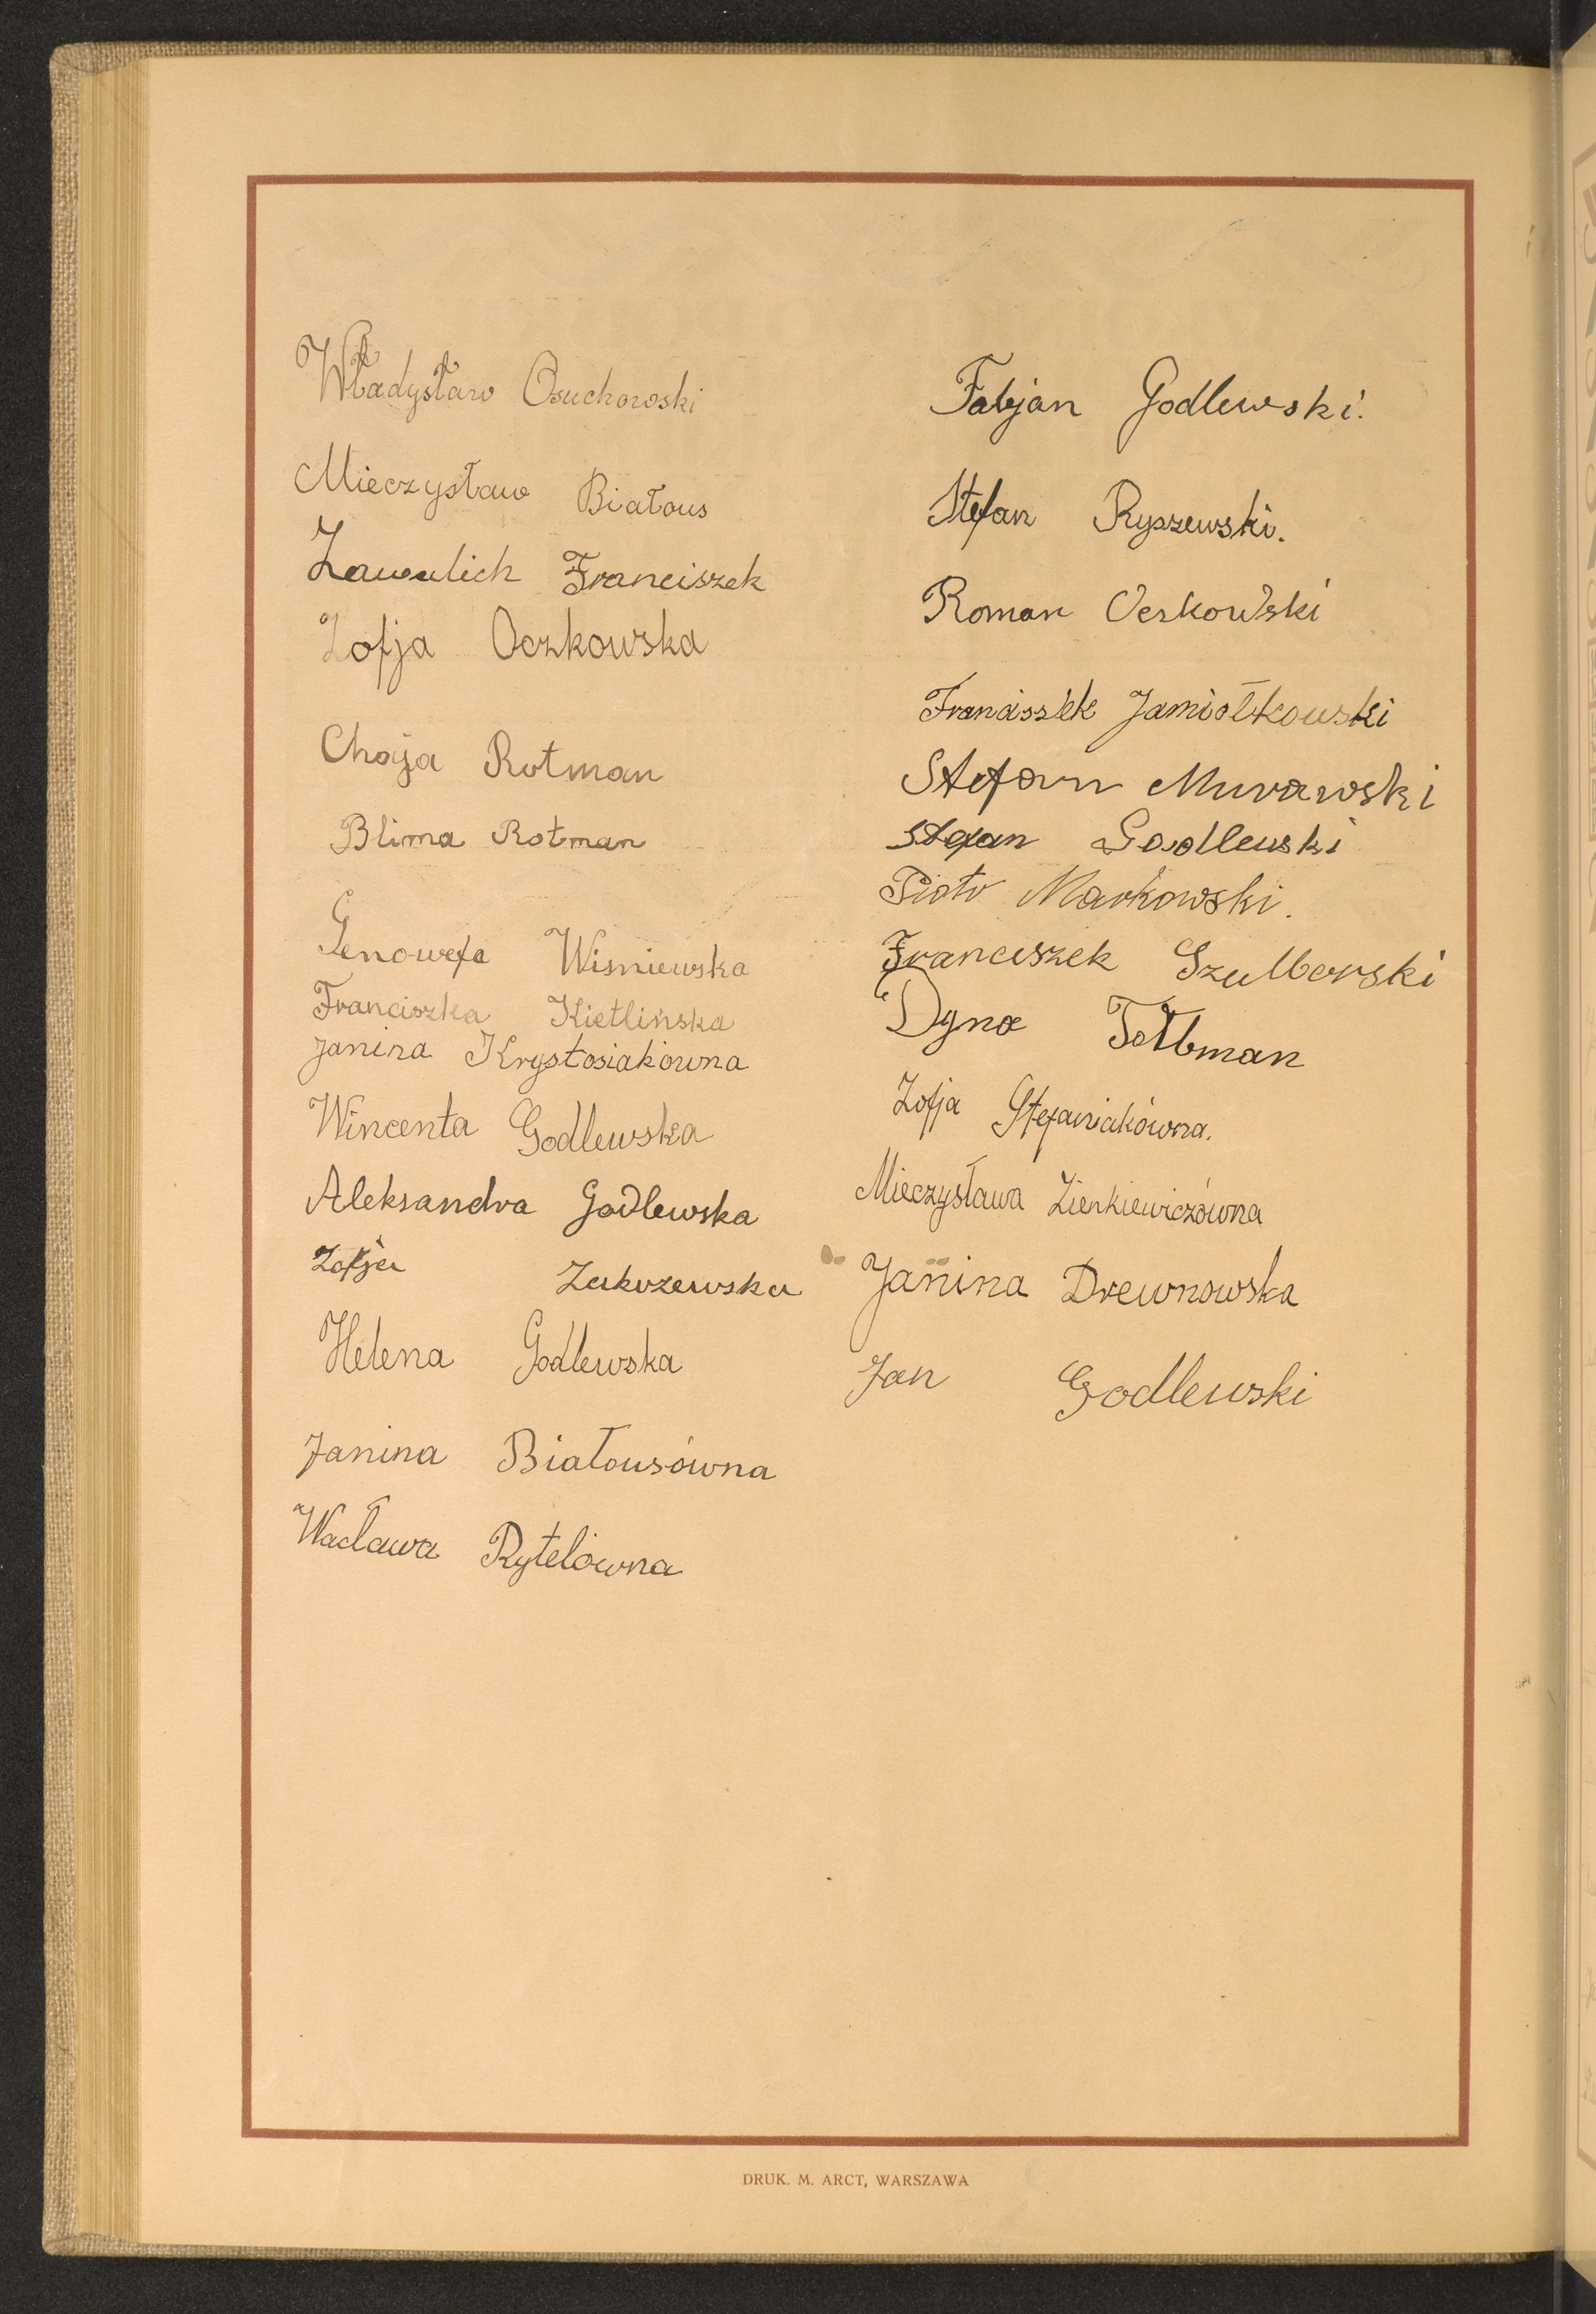 Władysław Osuchowski
Mieczysław Białous
Zawulich Franciszek
Zofja Oczkowska
Chaja Rotman
Blima Rotman
Genowefa Wisniewska
Franciszka Kietlińska
Janina Krystosiakówna
Wincenta Godlewska
Aleksandra Godlewska
Zofja Zakrzewska
Helena Godlewska
Janina Białousówna
Wacława Rytelówna
Fabjan Godlewski.
Stefan Ryszewski.
Roman Cerkowski
Franciszek Jamiołkowski
Stefan Murawski
Stefan Godlewski
Piotr Markowski.
Franciszek Szulborski
Dyna
Zofja Stefaniakówna.
Mieczysława Zienkiewiczówna
Janina Drewnowska
Jan Godlewski
DRUK. M. ARCT, WARSZAWA